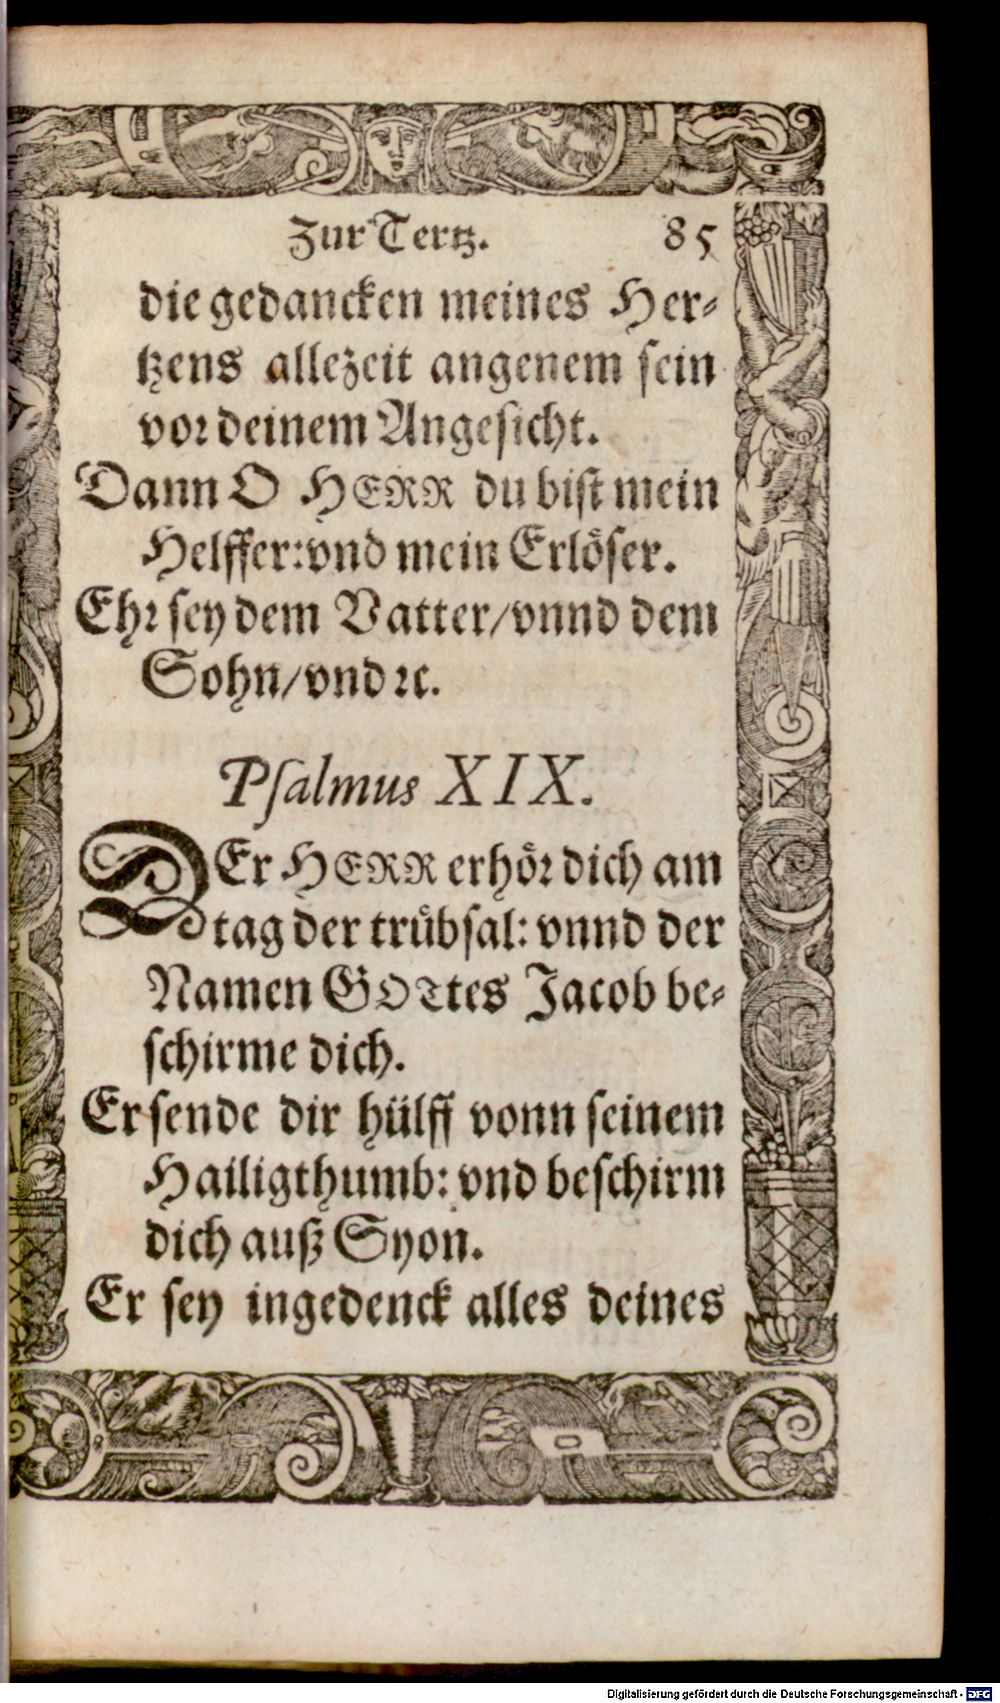 Zur Tertz. 85
die gedancken meines Her⸗
tzens allezeit angenem sein
vor deinem Angesicht.
Dann O HERR du bist mein
Helffer: vnd mein Erlöser.
Ehr sey dem Vatter/ vnnd dem
Sohn/ vnd ꝛc.
Psalmus XIX.
DEr HERR erhör dich am
tag der trübsal: vnnd der
Namen GOTtes Jacob be⸗
schirme dich.
Er sende dir hülff vonn seinem
Hailigthumb: vnd beschirm
dich auß Syon.
Er sey ingedenck alles deines
Digitalisierung gefördert durch die Deutsche Forschungsgemeinschaft - DFG